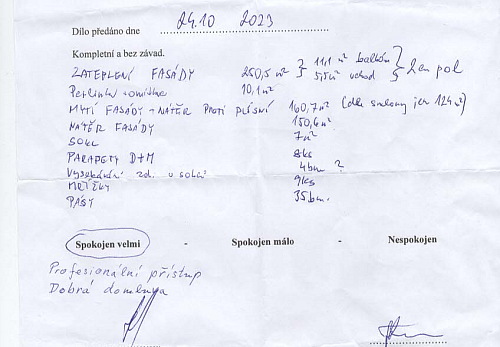 Dílo předáno dne 24.10 2023
Kompletní a bez závad.
ZATEPLENÍ FASÁDY 250,5 m² } 11,1 m² balkón } Jen pol
5,5 m² vchod
Perlinka + omítka 10,1 m²
MYTÍ FASÁDY + NÁTĚR PROTI PLÍSNI 160,7 m² (dle smlouvy jen 124 m²)
NÁTĚR FASÁDY 150,6 m²
SOKL 7 m²
PARAPETY D+M 8ks
Vysekávání zdi u soklu 4bm ?
MŘÍŽKY 9ks
PÁSY 35bm.
Spokojen velmi - Spokojen málo - Nespokojen
Profesionální přístup
Dobrá domluva